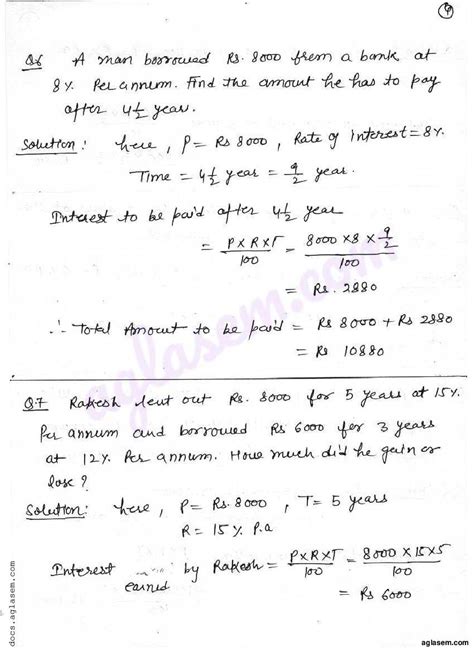 4
Q6 A man borrowed Rs. 8000 from a bank at
8%. Per annum. Find the amount he has to pay
after 4 1/2 year.
Solution: here, P = Rs 8000, Rate of Interest = 8%.
Time = 4 1/2 year = 9/2 year.
Interest to be paid after 4 1/2 year
= P X R X T / 100 = 8000 X 8 X 9/2 / 100
= Rs. 2880
∴ Total Amount to be paid = Rs 8000 + Rs 2880
= Rs 10880
Q7 Rakesh lent out Rs. 8000 for 5 years at 15%
Per annum and borrowed Rs 6000 for 3 years
at 12% Per annum. How much did he gain or
lose?
Solution: here, P = Rs. 8000, T = 5 years
R = 15% P.a
Interest earned by Rakesh = P X R X T / 100 = 8000 X 15 X 5 / 100
= Rs 6000
aglasem.com
docs.aglasem.com
aglasem.com